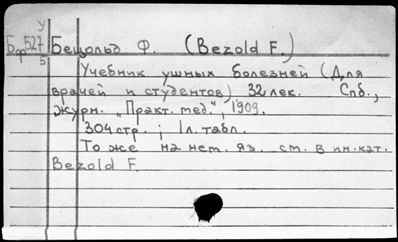 У
Бф527 Бецольд Ф. (Bezold F.)
5
Учебник ушных болезней (Для
врачей и студентов) 32 лек. Спб.,
журн. „Практ. мед.", 1909.
304 стр. ; 1 л. табл.
То же на нем. яз. см. в ин. кат.
Bezold F.